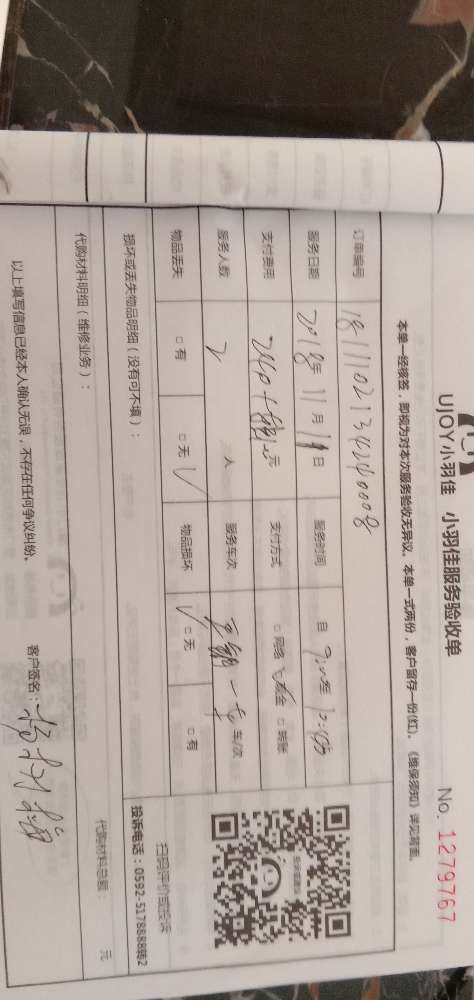 UJOY小羽佳 小羽佳服务验收单
No. 1279767
本单一经核签，即视为对本次服务验收无异议。本单一式两份，客户留存一份(红)。《维保须知》详见背面。
订单编号
服务日期 2018年 11月 11日 服务时间 自 9: 至
支付费用 240+ 元 支付方式 □网络 □现金 □转账
服务人数 2 人 服务车次 一 车/次
物品丢失 □有 □无 √ 物品损坏 √ □无 □有
损坏或丢失物品明细（没有可不填）：
扫码评价或投诉
投诉电话：0592-5178888转2
代购材料明细（维修业务）：
代购材料总额： 元
以上填写信息已经本人确认无误，不存在任何争议纠纷。
客户签名：